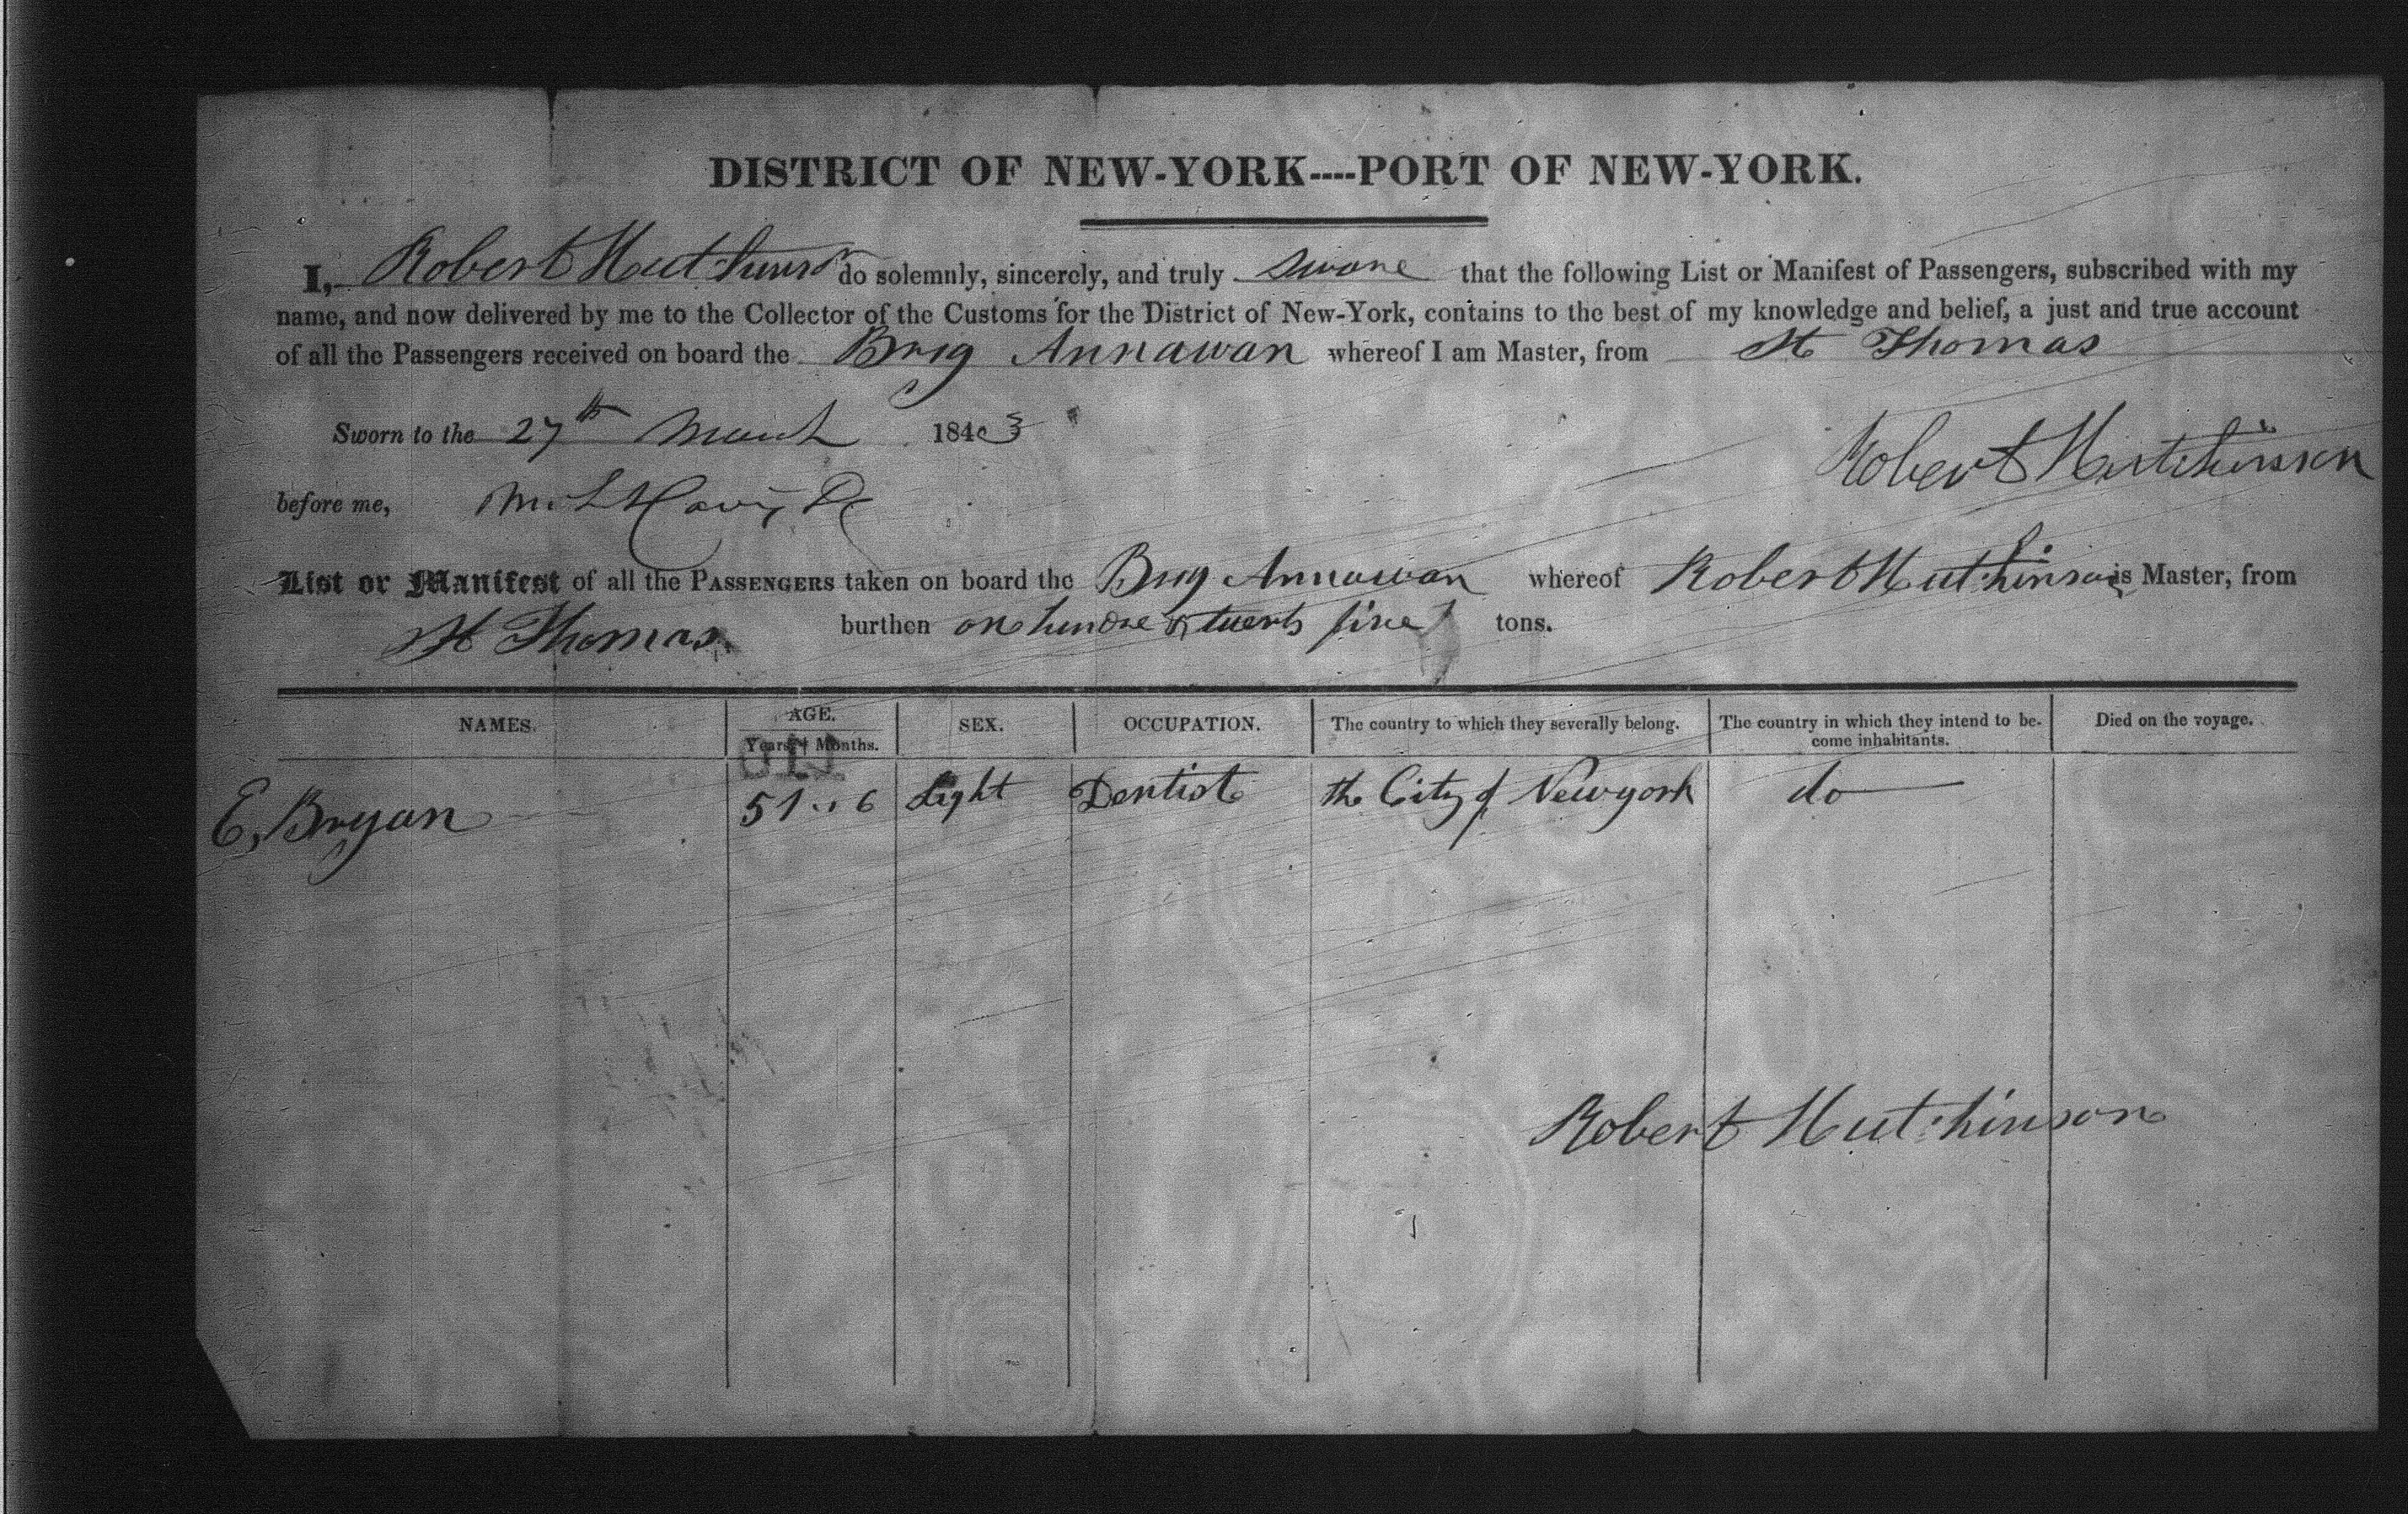 DISTRICT OF NEW-YORK----PORT OF NEW-YORK.
I, Robert Hutchinson do solemnly, sincerely, and truly Swore that the following List or Manifest of Passengers, subscribed with my
name, and now delivered by me to the Collector of the Customs for the District of New-York, contains to the best of my knowledge and belief, a just and true account
of all the Passengers received on board the Brig Annawan whereof I am Master, from St Thomas
Sworn to the 27th March 1843
Robert Hutchinson
before me,
List or Manifest of all the PASSENGERS taken on board the Brig Annawan whereof Robert Hutchinson is Master, from
St Thomas burthen tons.
NAMES. AGE. SEX. OCCUPATION. The country to which they severally belong. The country in which they intend to be- Died on the voyage.
Years. Months. come inhabitants.
E, Bryan 51 .. 6 Light Dentist the City of Newyork do
Robert Hutchinson